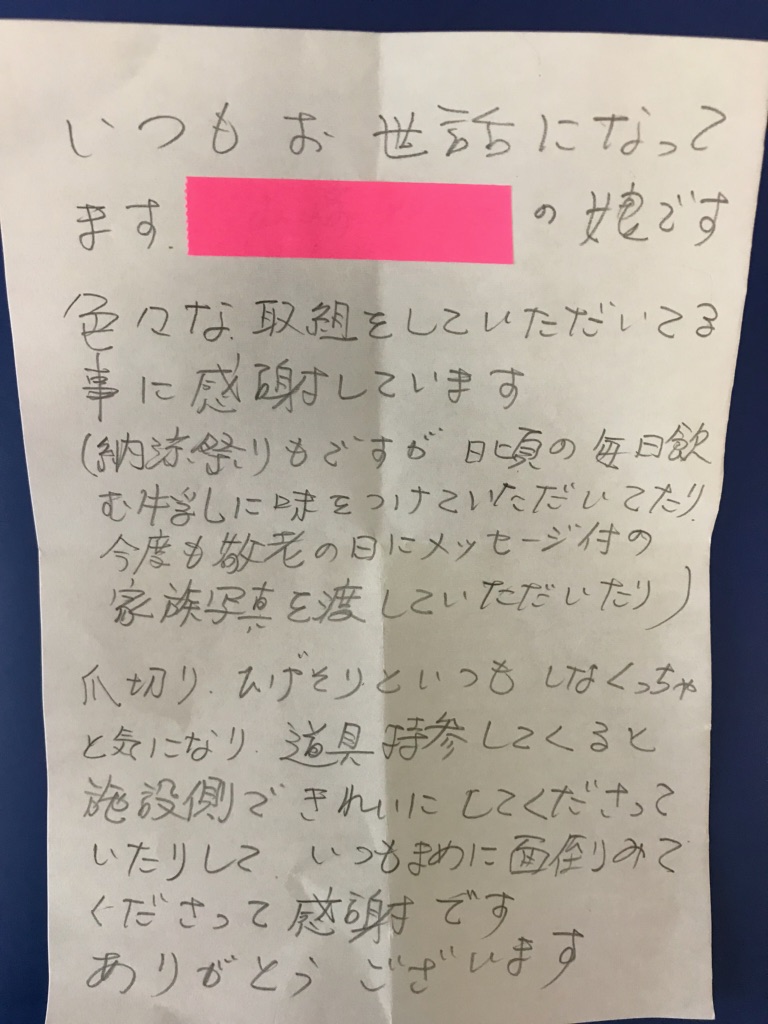 いつもお世話になって
ます. の娘です
色々な取組をしていただいてる
事に感謝しています
(納涼祭りもですが 日頃の毎日飲
む牛乳に味をつけていただいてたり
今度も敬老の日にメッセージ付の
家族写真を渡していただいたり)
爪切り.ひげそりといつもしなくっちゃ
と気になり.道具持参してくると
施設側できれいにしてくださって
いたりして.いつもまめに面倒みて
くださって感謝です
ありがとうございます